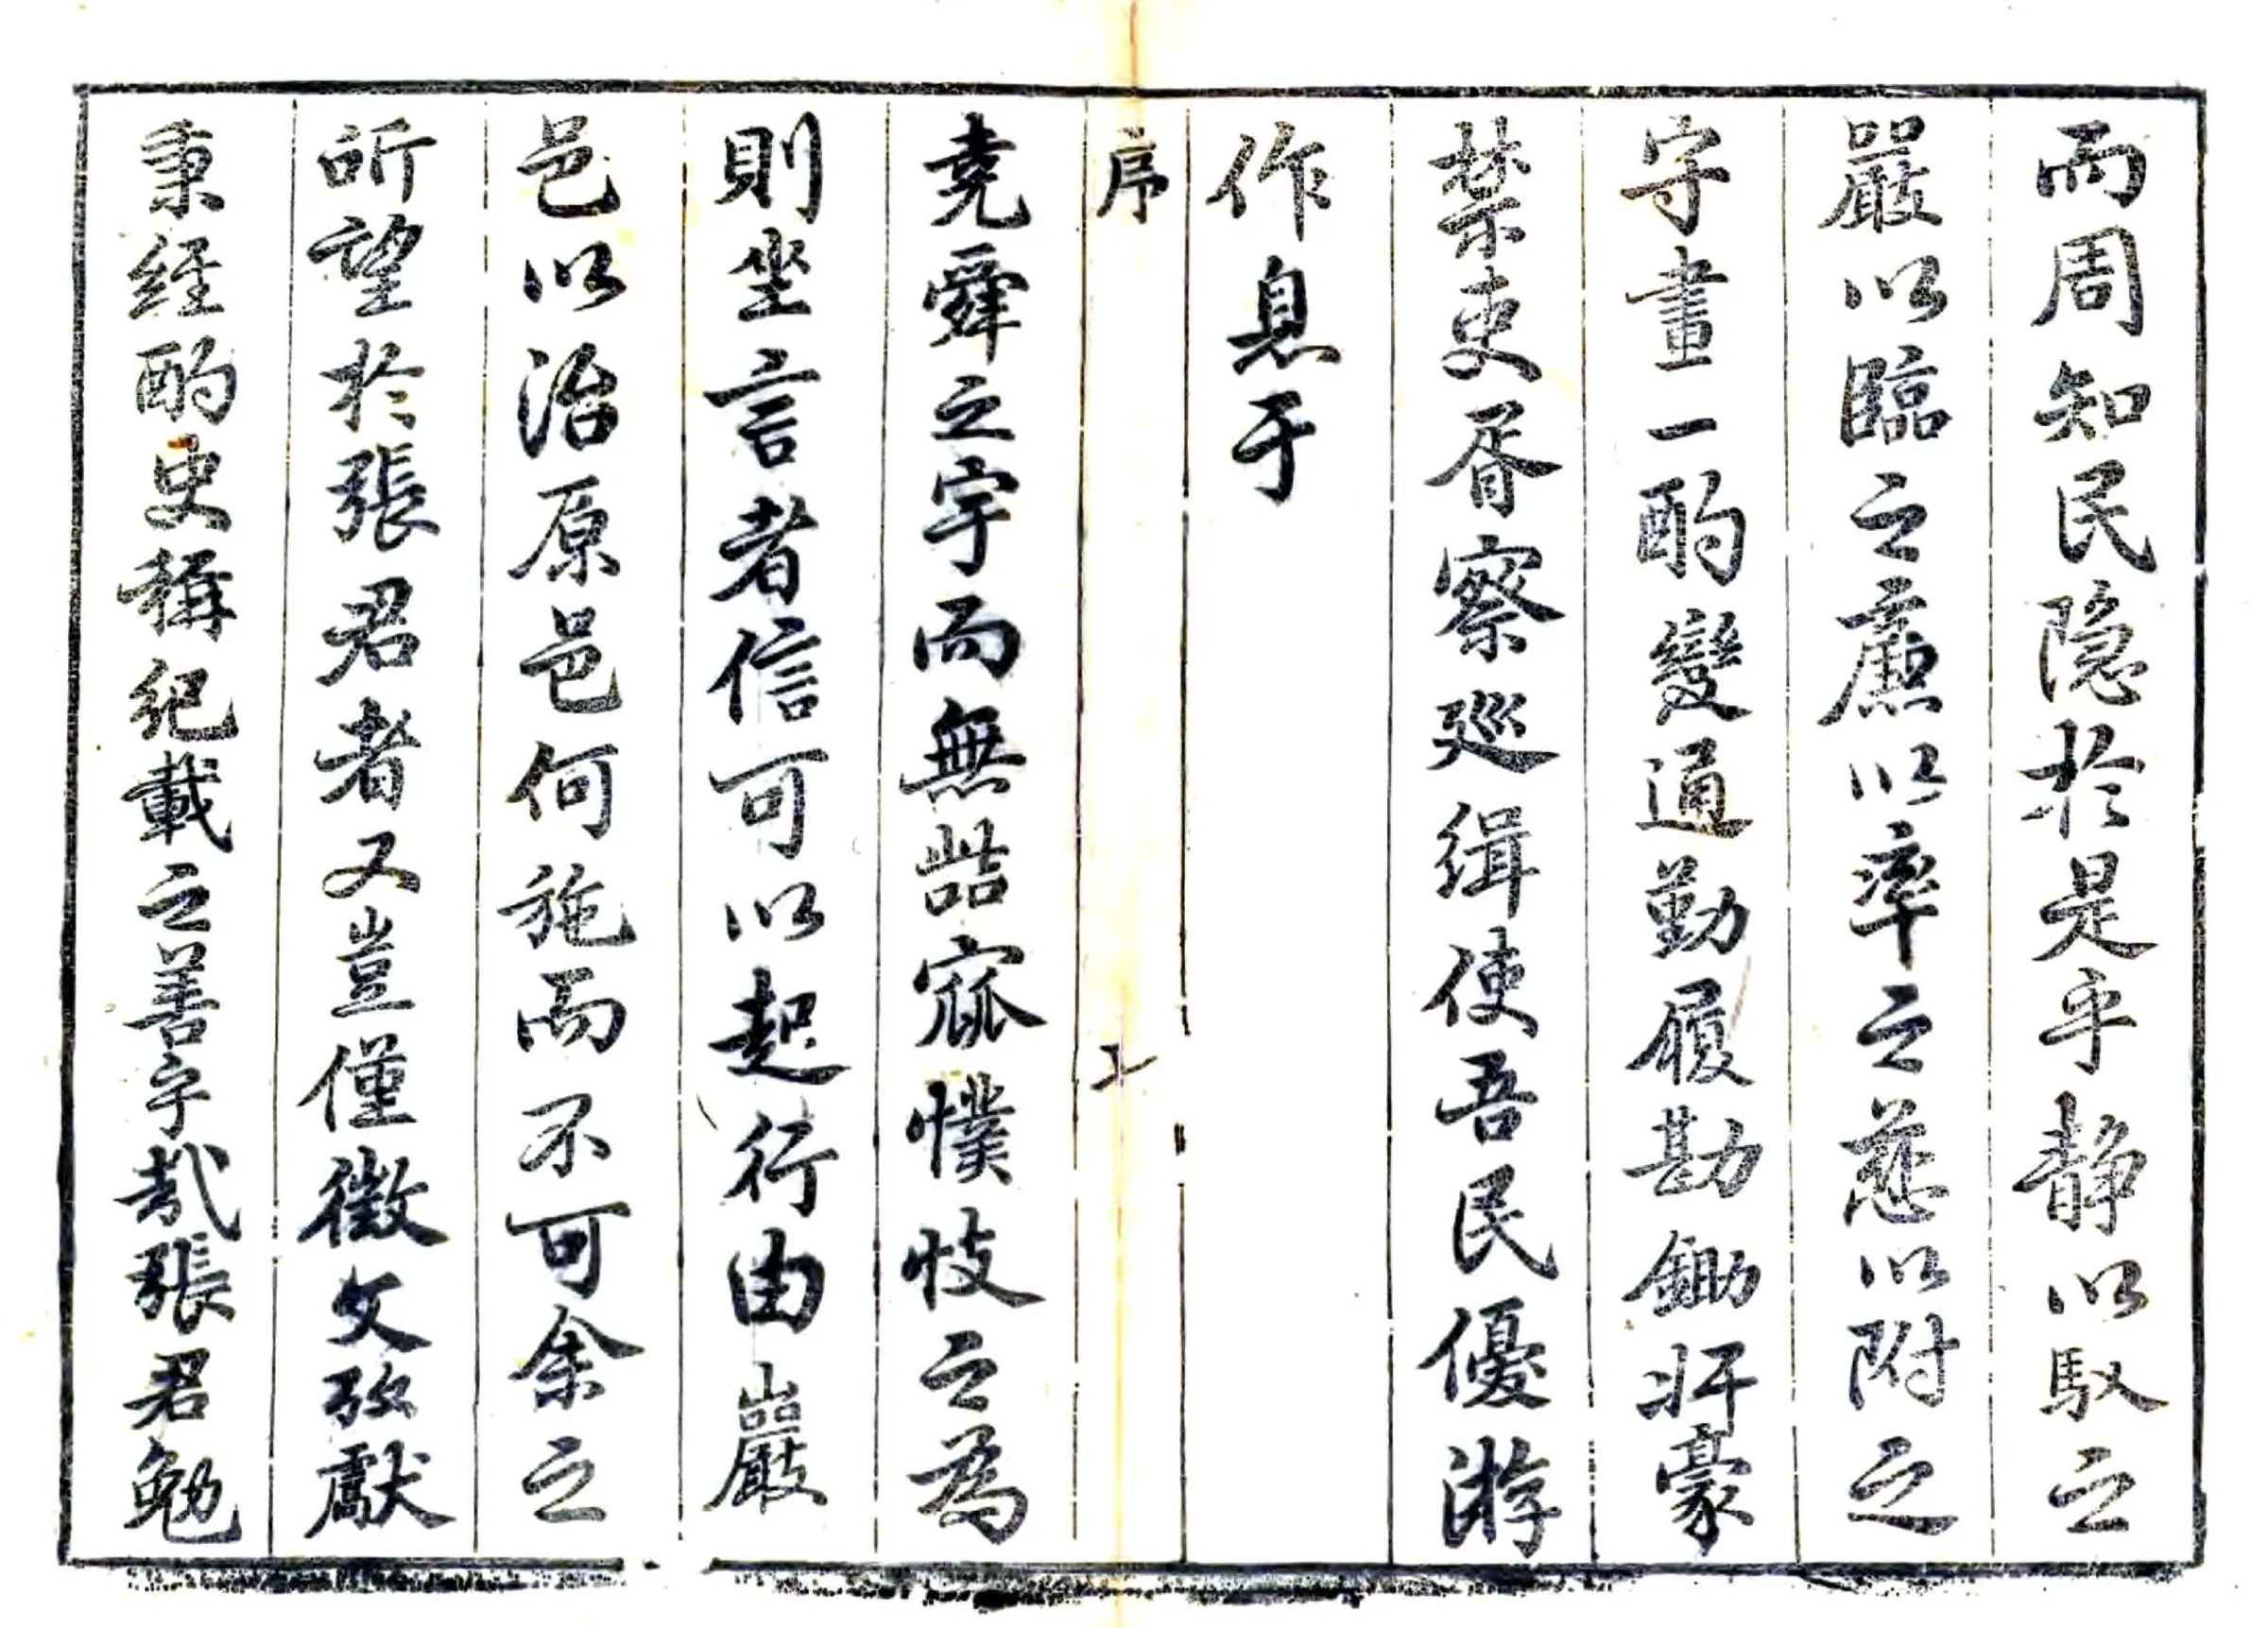 而周知民隐於是乎静以馭之
嚴以臨之廉以率之慈以附之
守畫一酌變通勤履勘鋤奸豪
禁吏胥察廵緝使吾民優游
作息于
序
堯舜之宇而無呰窳懻忮之為
則坐言者信可以起行由巖
邑以治原邑何施而不可余之
所望於張君者又豈僅徵文攷獻
秉經酌史稱紀載之善乎哉張君勉